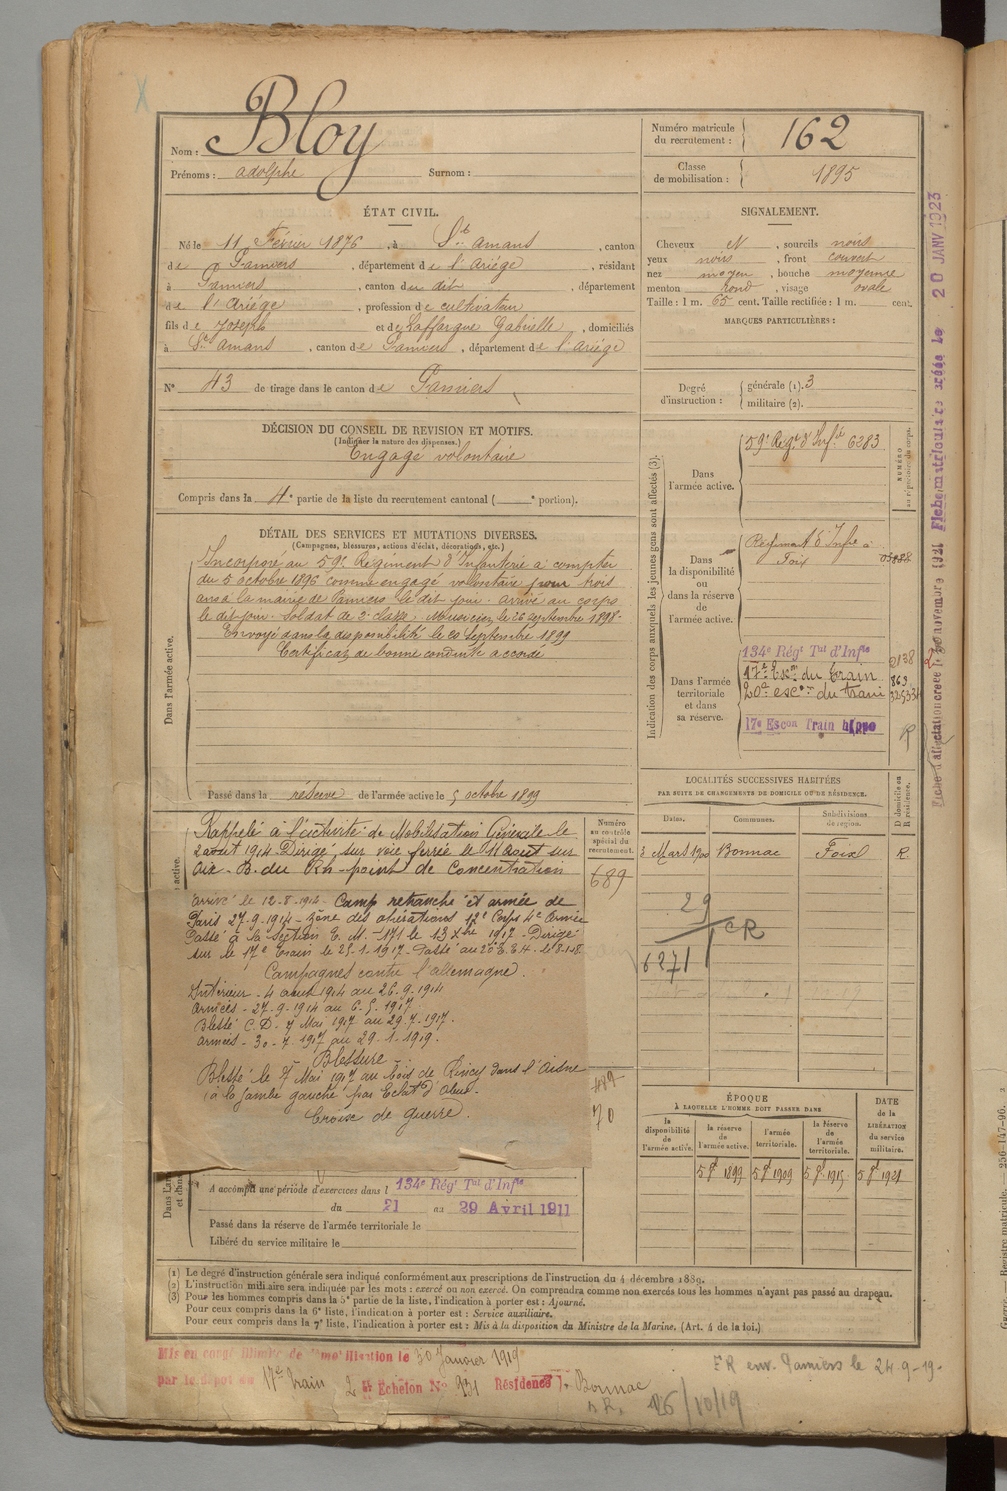 Bloy
Nom :
Prénoms : adolphe Surnom :
Numéro matricule
du recrutement : 162
Classe
de mobilisation : 1895
ÉTAT CIVIL.
Né le 11 Février 1876, à St amans, canton
de Pamiers, département de l'Ariége, résidant
à Pamiers, canton du dit, département
de l'Ariége, profession de cultivateur
fils de Joseph et de Laffargue Gabrielle, domiciliés
à St amans, canton de Pamiers, département de l'ariége
SIGNALEMENT.
Cheveux N, sourcils noirs
yeux noirs, front couvert
nez moyen, bouche moyenne
menton rond, visage ovale
Taille : 1 m. 65 cent. Taille rectifiée : 1 m. cent.
MARQUES PARTICULIÈRES :
No 43 de tirage dans le canton de Pamiers
Degré
d'instruction :
générale (1). 3
militaire (2).
DÉCISION DU CONSEIL DE REVISION ET MOTIFS.
(Indiquer la nature des dispenses.)
Engagé volontaire
Compris dans la 4e partie de la liste du recrutement cantonal ( e portion).
DÉTAIL DES SERVICES ET MUTATIONS DIVERSES.
(Campagnes, blessures, actions d'éclat, décorations, etc.)
Dans l'armée active.
Incorporé au 59e Régiment d'Infanterie à compter
du 5 octobre 1896 comme engagé volontaire pour trois
ans à la mairie de Pamiers le dit jour. arrivé au corps
le dit jour. soldat de 2e classe. Musicien le 26 septembre 1898.
Envoyé dans la disponibilité le 20 septembre 1899
Certificat de bonne conduite accordé
Passé dans la réserve de l'armée active le 5 octobre 1899
Indication des corps auxquels les jeunes gens sont affectés (3).
NUMÉRO
au répertoire du corps.
Dans
l'armée active.
59e Régt d'Infie 6283
Dans
la disponibilité
ou
dans la réserve
de
l'armée active.
Régiment d'Infie à
Foix
Dans l'armée
territoriale
et dans
sa réserve.
134e Régt Tal d'Infie 2138
17e Escon du Train 863
20e escon du train
17e Escon Train hippo R
Fiche matriculaire créée le 20 JANV 1923
LOCALITÉS SUCCESSIVES HABITÉES
PAR SUITE DE CHANGEMENTS DE DOMICILE OU DE RÉSIDENCE.
Dates. Communes. Subdivisions
de région. D domicile ou
R résidence.
3 Mars 1900 Bonnac Foix R.
29
1 CR
6271
Numéro
au contrôle
spécial du
recrutement.
689
active.
Rappelé à l'activité de Mobilisation Générale le
2 août 1914 Dirigé sur voie ferrée le 11 Août sur
Aix-B. du Rh-point de Concentration
arrivé le 12-8-1914 - Camp retranché et armée de
Paris 27-9-1914 - zône des opérations 12e Corps 4e Armée
Passé à la section E. M. - 171 le 13 Xbre 1917 - Dirigé
sur le 17e train le 25-1-1917 - Passé au 20e E.T.
Campagnes contre l'allemagne.
Intérieur - 4 aout 1914 au 26.9.1914
armées - 27-9-1914 au 6.5.1917
Blessé C.D. 7 Mai 1917 au 29.7.1917.
armées - 30-7-1917 au 29-1-1919.
Blessure
Blessé le 7 Mai 1917 au bois de Rincy dans l'Aisne
à la jambe gauche par Eclat d'Obus.
Croix de guerre.
489
70
ÉPOQUE
À LAQUELLE L'HOMME DOIT PASSER DANS
la
disponibilité
de
l'armée active.
la réserve
de
l'armée active.
l'armée
territoriale.
la réserve
de
l'armée
territoriale.
DATE
de la
LIBÉRATION
du service
militaire.
5 8bre 1899 5 8bre 1909 5 8bre 1915 5 8bre 1921
A accompli une période d'exercices dans l 134e Régt Tal d'Infie
du 21 au 29 Avril 1911
Passé dans la réserve de l'armée territoriale le
Libéré du service militaire le
(1) Le degré d'instruction générale sera indiqué conformément aux prescriptions de l'instruction du 4 décembre 1889.
(2) L'instruction militaire sera indiquée par les mots : exercé ou non exercé. On comprendra comme non exercés tous les hommes n'ayant pas passé au drapeau.
(3) Pour les hommes compris dans la 5e partie de la liste, l'indication à porter est : Ajourné.
Pour ceux compris dans la 6e liste, l'indication à porter est : Service auxiliaire.
Pour ceux compris dans la 7e liste, l'indication à porter est : Mis à la disposition du Ministre de la Marine. (Art. 4 de la loi.)
Mis en congé illimité de démobilisation le 30 Janvier 1919
par le dépôt du 17e Train 2 Echelon No 931 Résidence Bonnac
FR env. Pamiers le 24-9-19-
26/10/19